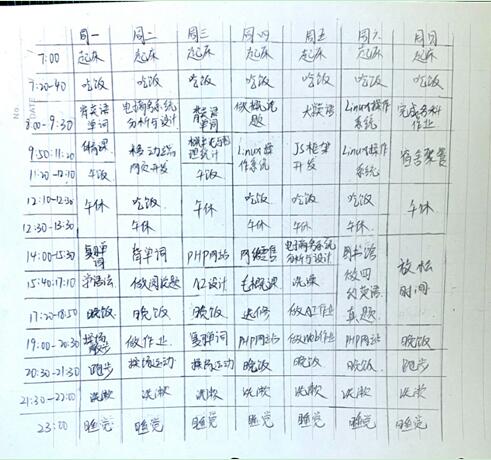 周一 周二 周三 周四 周五 周六 周日
7:00 起床 起床 起床 起床 起床 起床 起床
7:20-40 吃饭 吃饭 吃饭 吃饭 吃饭 吃饭 吃饭
8:00-9:30 背英语单词 电商务系统分析与设计 背英语单词 做概论题 大英语 Linux操作系统 完成各科作业
9:50-11:20 体育课 移动终端网页开发 概率论与数理统计 Linux操作系统 JS框架开发 Linux操作系统 宿舍聚餐
11:20-12:10 午饭 午饭
12:10-12:30 午休 吃饭 午休 吃饭 吃饭 吃饭 午休
12:30-13:30 午休 午休 午休 午休
14:00-15:30 复单词 背单词 PHP网站 网络营售 电子商务系统分析与设计 图书馆做四级英语真题 放松时间
15:40-17:10 学语法 做阅读题 AI设计 毛概课 洗澡
17:20-18:50 晚饭 晚饭 晚饭 做AI作业
19:00-20:30 操场散步 做作业 复单词 PHP网站 做Web作业 PHP网站 晚饭
20:30-21:30 跑步 操场运动 操场运动 晚饭 晚饭 晚饭 跑步
21:30-22:00 洗漱 洗漱 洗漱 洗漱 洗漱 洗漱 洗漱
23:00 睡觉 睡觉 睡觉 睡觉 睡觉 睡觉 睡觉
No.
DATE